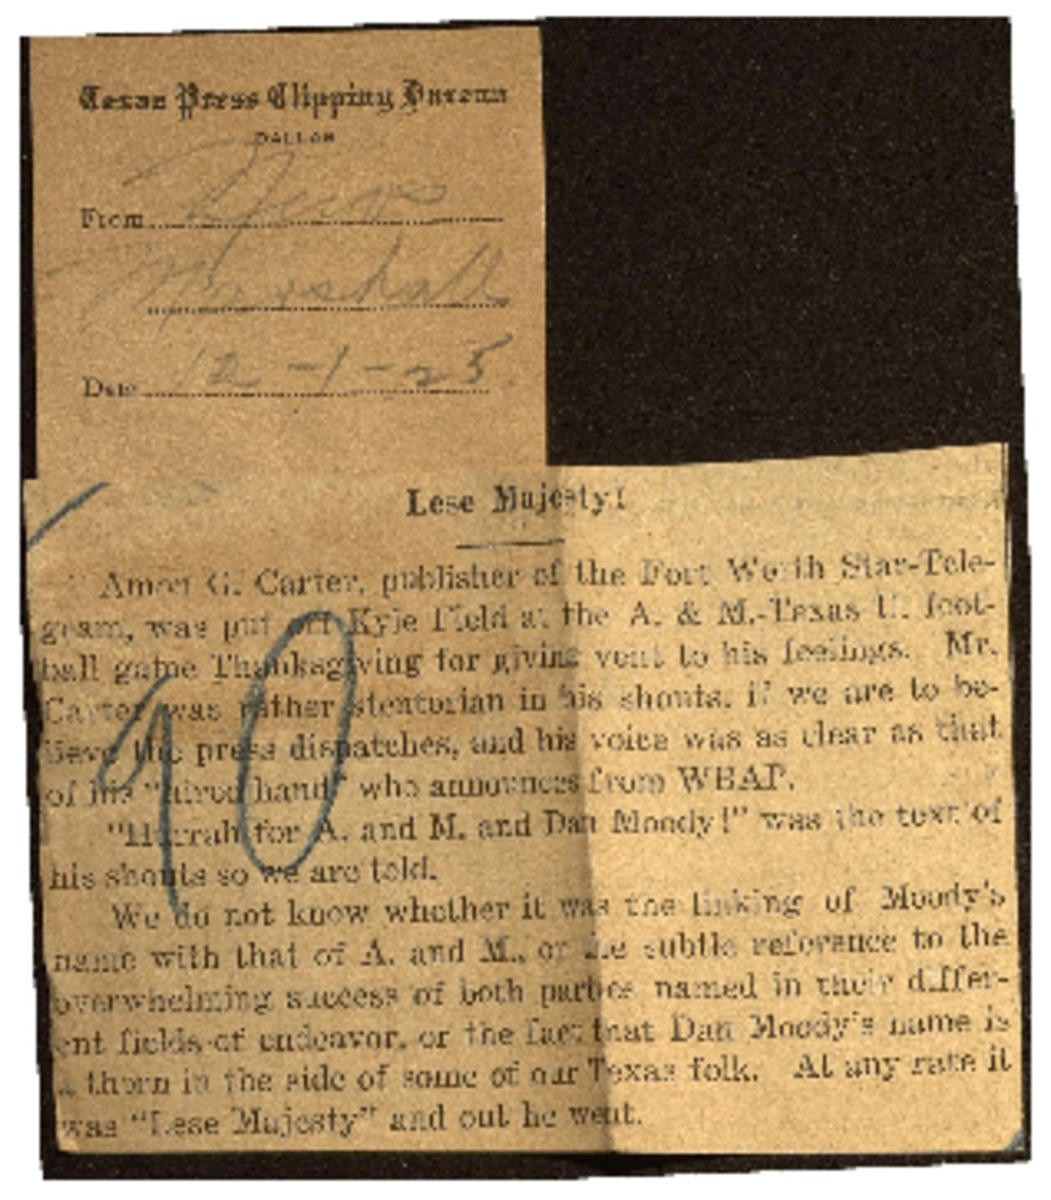 Texas Press Clipping Bureau
DALLAS
From News
Marshall
Date 12-1-25
Lese Majesty!
Amon G. Carter, publisher of the Fort Worth Star-Tele-
gram, was put off Kyle Field at the A. & M.-Texas U. foot-
ball game Thanksgiving for giving vent to his feelings. Mr.
Carter was rather stentorian in his shouts, if we are to be-
lieve the press dispatches, and his voice was as clear as that
of his "hired hand" who announces from WBAP.
"Hurrah for A. and M. and Dan Moody!" was the text of
his shouts so we are told.
We do not know whether it was the linking of Moody's
name with that of A. and M., or the subtle reference to the
overwhelming success of both parties named in their differ-
ent fields of endeavor, or the fact that Dan Moody's name is
a thorn in the side of some of our Texas folk. At any rate it
was "Lese Majesty" and out he went.
90